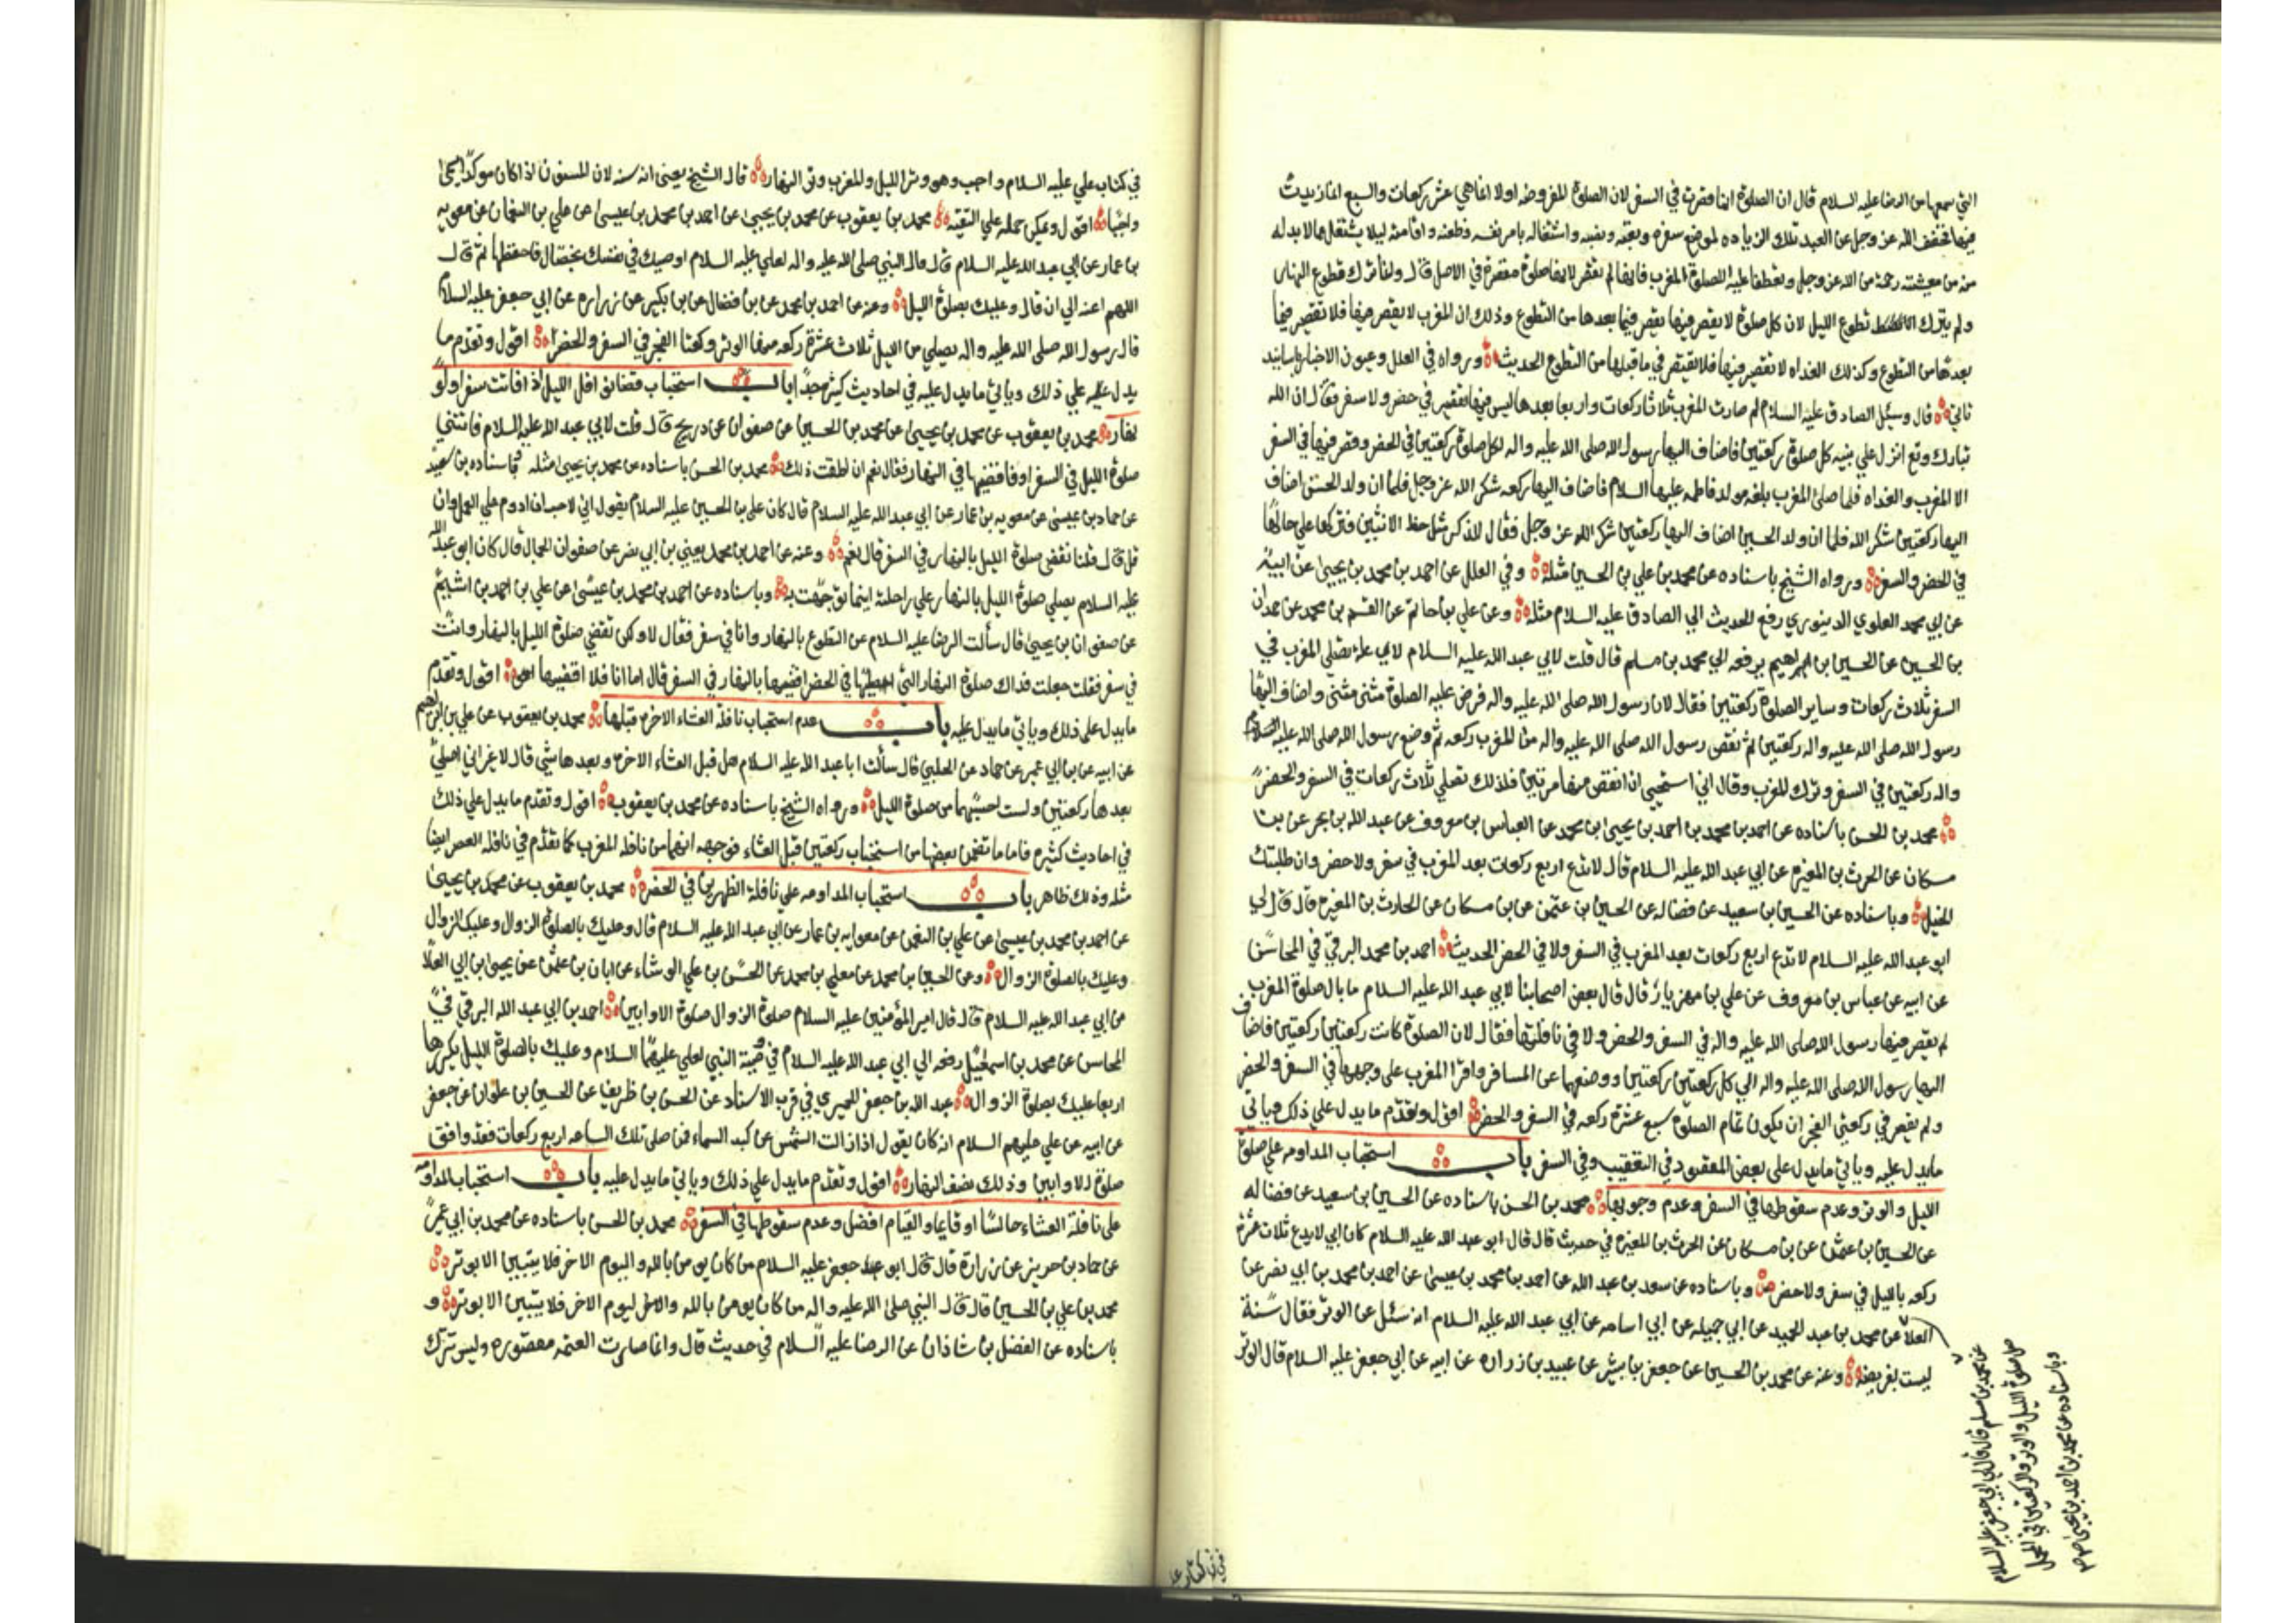 التي سمعها من الرضا عليه السلام قال ان الصلوة انما قصرت في السفر لان الصلوة المفروضه اولا انما هي عشر ركعات والسبع انما زيدت
فيها فخفف الله عز وجل عن العبد تلك الزياده لموضع سفره وتعبه ونصبه واشتغاله بامر نفسه وظعنه واقامته ليلا يشتغل عما لا بد له
منه من معيشته رحمة من الله عز وجل وتعطفا عليه الا صلوة المغرب فانها لم تقصر لانها صلوة مقصرة في الاصل قال وانما ترك تطوع النهار
ولم يترك تطوع الليل لان كل صلوة لا يقصر فيها لا يقصر فيما بعدها من التطوع وذلك ان المغرب لا يقصر فيها فلا تقصير فيما
بعدها من التطوع وكذلك الغداه لا تقصير فيها فلا تقصير في ما قبلها من التطوع الحديث ورواه في العلل وعيون الاخبار باسانيد
تاتي قال وسئل الصادق عليه السلام لم صارت المغرب ثلاث ركعات واربعا بعدها ليس فيها تقصير في حضر ولا سفر فقال ان الله
تبارك وتع انزل علي نبيه كل صلوة ركعتين فاضاف اليها رسول الله صلى الله عليه واله لكل صلوة ركعتين في الحضر وقصر فيها في السفر
الا المغرب والغداه فلما صلى المغرب بلغه مولد فاطمه عليها السلام فاضاف اليها ركعه شكر الله عز وجل فلما ان ولد الحسن اضاف
اليها ركعتين شكر الله فلما ان ولد الحسين اضاف اليها ركعتين شكر الله عز وجل فقال للذكر مثل حظ الانثيين فتركها على حالها
في الحضر والسفر ورواه الشيخ باسناده عن محمد بن علي بن الحسين مثله وفي العلل عن احمد بن محمد بن يحيى عن ابيه
عن ابي محمد العلوي الدينوري رفع الحديث الي الصادق عليه السلام مثله وعن علي بن حاتم عن القسم بن محمد عن حمدان
بن الحسين عن الحسين بن ابراهيم يرفعه الي محمد بن مسلم قال قلت لابي عبد الله عليه السلام لاي علة تصلى المغرب في
السفر ثلاث ركعات وساير الصلوة ركعتين فقال لان رسول الله صلى الله عليه واله فرض عليه الصلوة مثنى مثنى واضاف اليها
رسول الله صلى الله عليه واله ركعتين ثم نقص رسول الله صلى الله عليه واله من المغرب ركعه ثم وضع رسول الله صلى الله عليه
واله ركعتين في السفر وترك المغرب وقال اني استحيي ان انقص منها مرتين فلذلك تصلى ثلاث ركعات في السفر والحضر
محمد بن الحسن باسناده عن احمد بن محمد بن احمد بن يحيى بن محمد عن العباس بن معروف عن عبد الله بن بحر عن بن
مسكان عن الحرث بن المغيره عن ابي عبد الله عليه السلام قال لا تدع اربع ركعات بعد المغرب في سفر ولا حضر وان طلبتك
الخيل وباسناده عن الحسين بن سعيد عن فضاله عن الحسين بن عثمن عن بن مسكان عن الحارث بن المغيره قال قال لي
ابو عبد الله عليه السلام لا تدع اربع ركعات بعد المغرب في السفر ولا في الحضر الحديث احمد بن محمد البرقي في المحاسن
عن ابيه عن عباس بن معروف عن علي بن مهزيار قال قال بعض اصحابنا لابي عبد الله عليه السلام ما بال صلوة المغرب
لم يقصر فيها رسول الله صلى الله عليه واله في السفر والحضر ولا في نافلتها فقال لان الصلوة كانت ركعتين ركعتين فاضاف
اليها رسول الله صلى الله عليه واله الي كل ركعتين ركعتين ووضعها عن المسافر واقرا المغرب على وجهها في السفر والحضر
ولم يقصر في ركعتي الفجر ان يكون تمام الصلوة سبع عشرة ركعه في السفر والحضر اقول وتقدم ما يدل علي ذلك وياتي
مايدل عليه وياتي مايدل على بعض المقصود في التعقيب وفي السفر باب استحباب المداومه علي صلوة
الليل والوتر وعدم سقوطها في السفر وعدم وجوبها محمد بن الحسن باسناده عن الحسين بن سعيد عن فضاله
عن الحسين بن عثمن عن بن مسكان عن الحرث بن المغيره في حديث قال قال ابو عبد الله عليه السلام كان ابي لا يدع ثلاث عشرة
ركعه بالليل في سفر ولا حضر وباسناده عن سعد بن عبد الله عن احمد بن محمد بن عيسى عن احمد بن محمد بن ابي نصر عن
العلا عن محمد بن عبد الحميد عن ابي جميله عن ابي اسامه عن ابي عبد الله عليه السلام انه سئل عن الوتر فقال سنة
ليست بفريضه وعنه عن محمد بن الحسين عن جعفر بن بشير عن عبيد بن زراره عن ابيه عن ابي جعفر عليه السلام قال الوتر
عن محمد بن مسلم قال قال لي ابي جعفر عليه السلام
صل صلوة الليل والوتر والركعتين في المحمل
وباسناده عن محمد بن احمد بن يحيى
في كتاب علي عليه السلام واجب وهو وتر الليل والمغرب وتر النهار قال الشيخ يعني انه سنه لان المسنون اذا كان موكدا سمى
واجبا اقول ويمكن حمله علي التقيه محمد بن يعقوب عن محمد بن يحيى عن احمد بن محمد بن عيسى عن علي بن النعمان عن معويه
بن عمار عن ابي عبد الله عليه السلام قال قال النبي صلى الله عليه واله لعلي عليه السلام اوصيك في نفسك بخصال فاحفظها ثم قال
اللهم اعنه الي ان قال وعليك بصلوة الليل وعنه عن احمد بن محمد عن بن فضال عن بن بكير عن زراره عن ابي جعفر عليه السلام
قال رسول الله صلى الله عليه واله يصلي من الليل ثلاث عشرة ركعه منها الوتر وركعتا الفجر في السفر والحضر اقول وتقدم ما
يدل عليه علي ذلك وياتي مايدل عليه في احاديث كثيره جدا باب استحباب قضا نوافل الليل اذا فاتت سفرا ولو
نهارا محمد بن يعقوب عن محمد بن يحيى عن محمد بن الحسين عن صفوان عن ذريح قال قلت لابي عبد الله عليه السلام فاتتني
صلوة الليل في السفر افاقضيها في النهار فقال نعم ان اطقت ذلك محمد بن الحسن باسناده عن محمد بن يحيى مثله وباسناده بن سعيد
عن حماد بن عيسى عن معويه بن عمار عن ابي عبد الله عليه السلام قال كان علي بن الحسين عليه السلام يقول اني لاحب ان ادوم علي العمل وان
قل قال قلنا نقضي صلوة الليل بالنهار في السفر قال نعم وعنه عن احمد بن محمد يعني بن ابي نصر عن صفوان الجمال قال كان ابو عبد الله
عليه السلام يصلي صلوة الليل بالنهار علي راحلته اينما توجهت به وباسناده عن احمد بن محمد بن عيسى عن علي بن احمد بن اشيم
عن صفوان بن يحيى قال سألت الرضا عليه السلام عن التطوع بالنهار وانا في سفر فقال لا ولكن تقضي صلوة الليل بالنهار وانت
في سفر فقلت جعلت فداك صلوة النهار التي اصليها في الحضر اقضيها بالنهار في السفر قال اما انا فلا اقضيها اقول وتقدم
مايدل على ذلك وياتي مايدل عليه باب عدم استحباب نافلة العشاء الاخره قبلها محمد بن يعقوب عن علي بن ابراهيم
عن ابيه عن بن ابي عمير عن حماد عن الحلبي قال سألت ابا عبد الله عليه السلام هل قبل العشاء الاخره وبعدها شي قال لا غير اني اصلي
بعدها ركعتين ولست احسبهما من صلوة الليل ورواه الشيخ باسناده عن محمد بن يعقوب اقول وتقدم مايدل علي ذلك
في احاديث كثيره فاما ما تضمن بعضها من استحباب ركعتين قبل العشاء فوجهه انهما من نافله المغرب كما تقدم في نافله العصر ايضا
مثله وذلك ظاهر باب استحباب المداومه علي نافلة الظهرين في الحضر محمد بن يعقوب عن محمد بن يحيى
عن احمد بن محمد بن عيسى عن علي بن النعمن عن معوايه بن عمار عن ابي عبد الله عليه السلام قال وعليك بالصلوة الزوال وعليك الزوال
وعليك بالصلوة الزوال وعن الحسين بن محمد عن معلي بن محمد عن الحسن بن علي الوشاء عن ابان بن عثمن عن يحيى بن ابي العلا
عن ابي عبد الله عليه السلام قال قال امير المؤمنين عليه السلام صلوة الزوال صلوة الاوابين احمد بن ابي عبد الله البرقي في
المحاسن عن محمد بن اسمعيل رفعه الي ابي عبد الله عليه السلام في وصية النبي لعلي عليهما السلام وعليك بالصلوة الليل يكررها
اربعا عليك بصلوة الزوال عبد الله بن جعفر الحميري في قرب الاسناد عن الحسن بن ظريف عن الحسين بن علوان عن جعفر
عن ابيه عن علي عليهم السلام انه كان يقول اذا زالت الشمس عن كبد السماء فمن صلى تلك الساعه اربع ركعات فقد وافق
صلوة الاوابين وذلك نصف النهار اقول وتقدم مايدل علي ذلك وياتي مايدل عليه باب استحباب المداومه
على نافلة العشاء جالسا او قايما والقيام افضل وعدم سقوطها في السفر محمد بن الحسن باسناده عن محمد بن ابي عمير
عن حماد بن حريز عن زرارة قال قال ابو جعفر عليه السلام من كان يومن بالله واليوم الاخر فلا يبيتين الا بوتر
محمد بن علي بن الحسين قال قال النبي صلى الله عليه واله من كان يومن بالله واليوم الاخر فلا يبيتين الا بوتر و
باسناده عن الفضل بن شاذان عن الرضا عليه السلام في حديث قال وانما صارت العتمه مقصوره وليس تترك